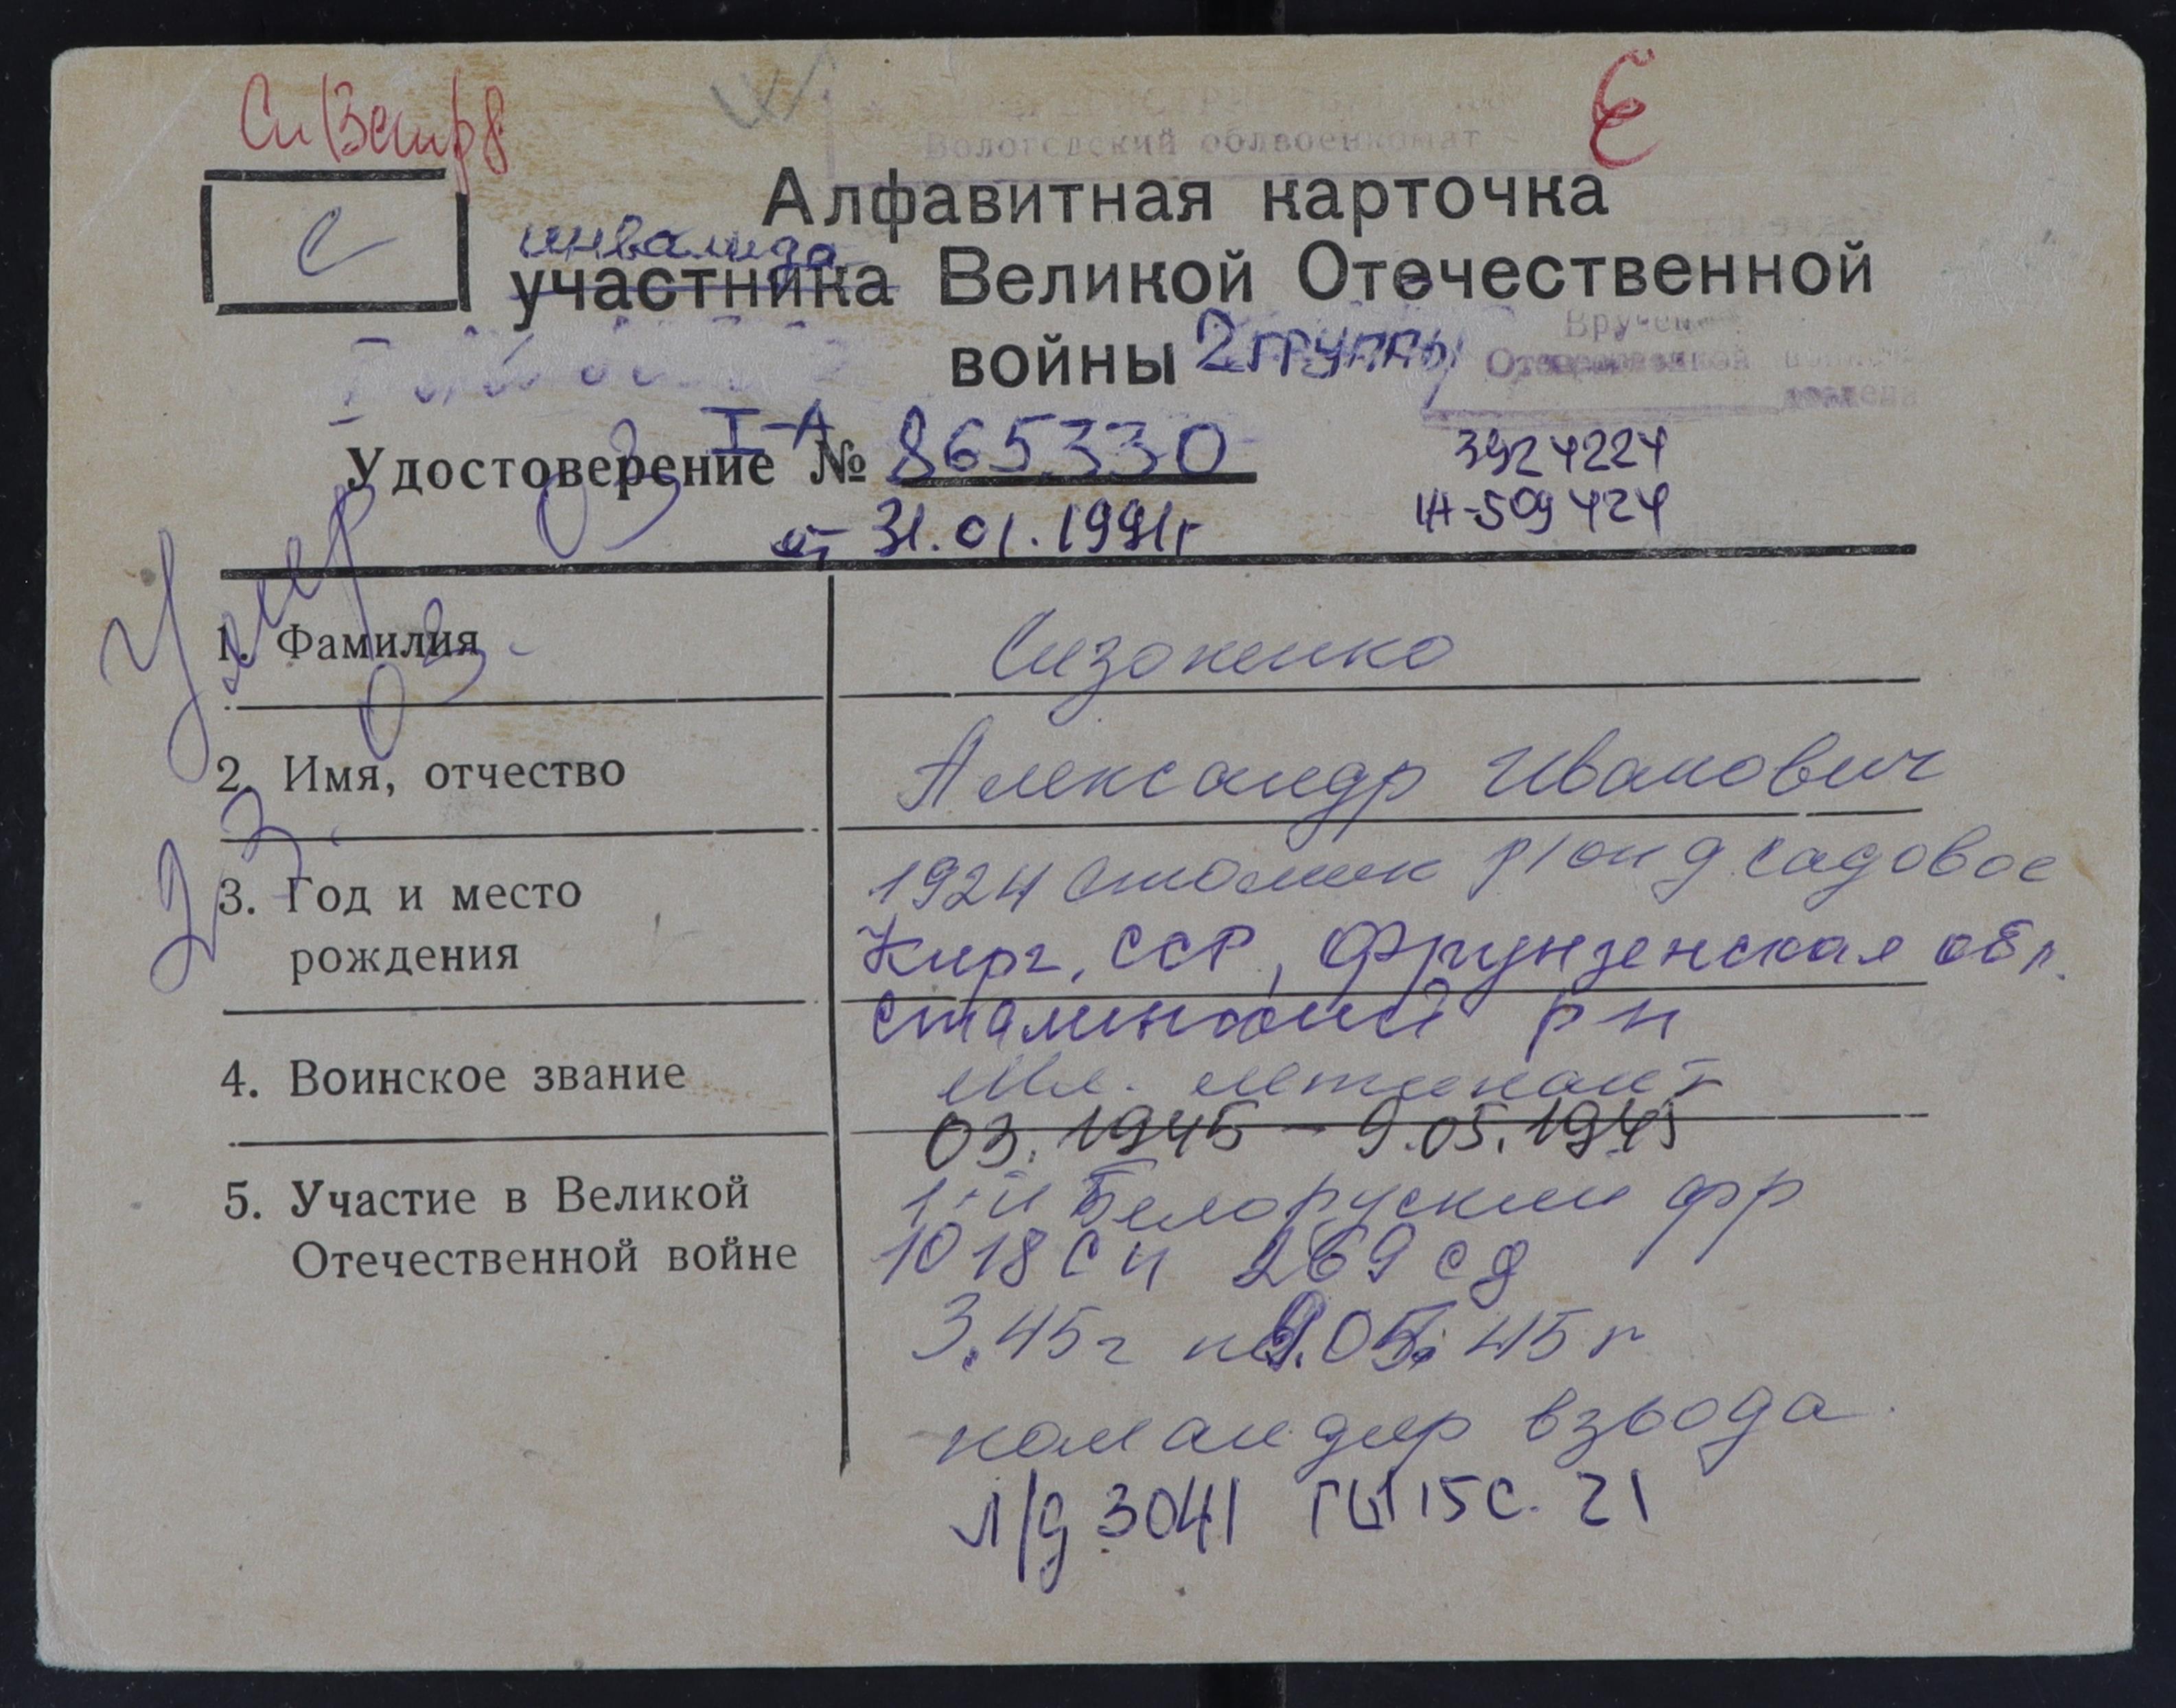 Вологодский облвоенкомат
Алфавитная карточка
С
инвалида
участника Великой Отечественной
войны 2 группы
Вручен
Отечественной войны
I-А
Удостоверение № 865330
от 31.01.1991г
3924224
Умер
03
03
23.
1. Фамилия Сизоненко
2. Имя, отчество Александр Иванович
3. Год и место
рождения
1924 Сталинск р/он д Садовое
Кирг. ССР, Фрунзенская обл.
Сталинский р-н
4. Воинское звание Мл. лейтенант
03.1945 – 9.05.1945
5. Участие в Великой
Отечественной войне
1-й Белоруский фр
1018 сп 269 сд
3.45г по 9.05.45г
командир взвода.
Л/д 3041